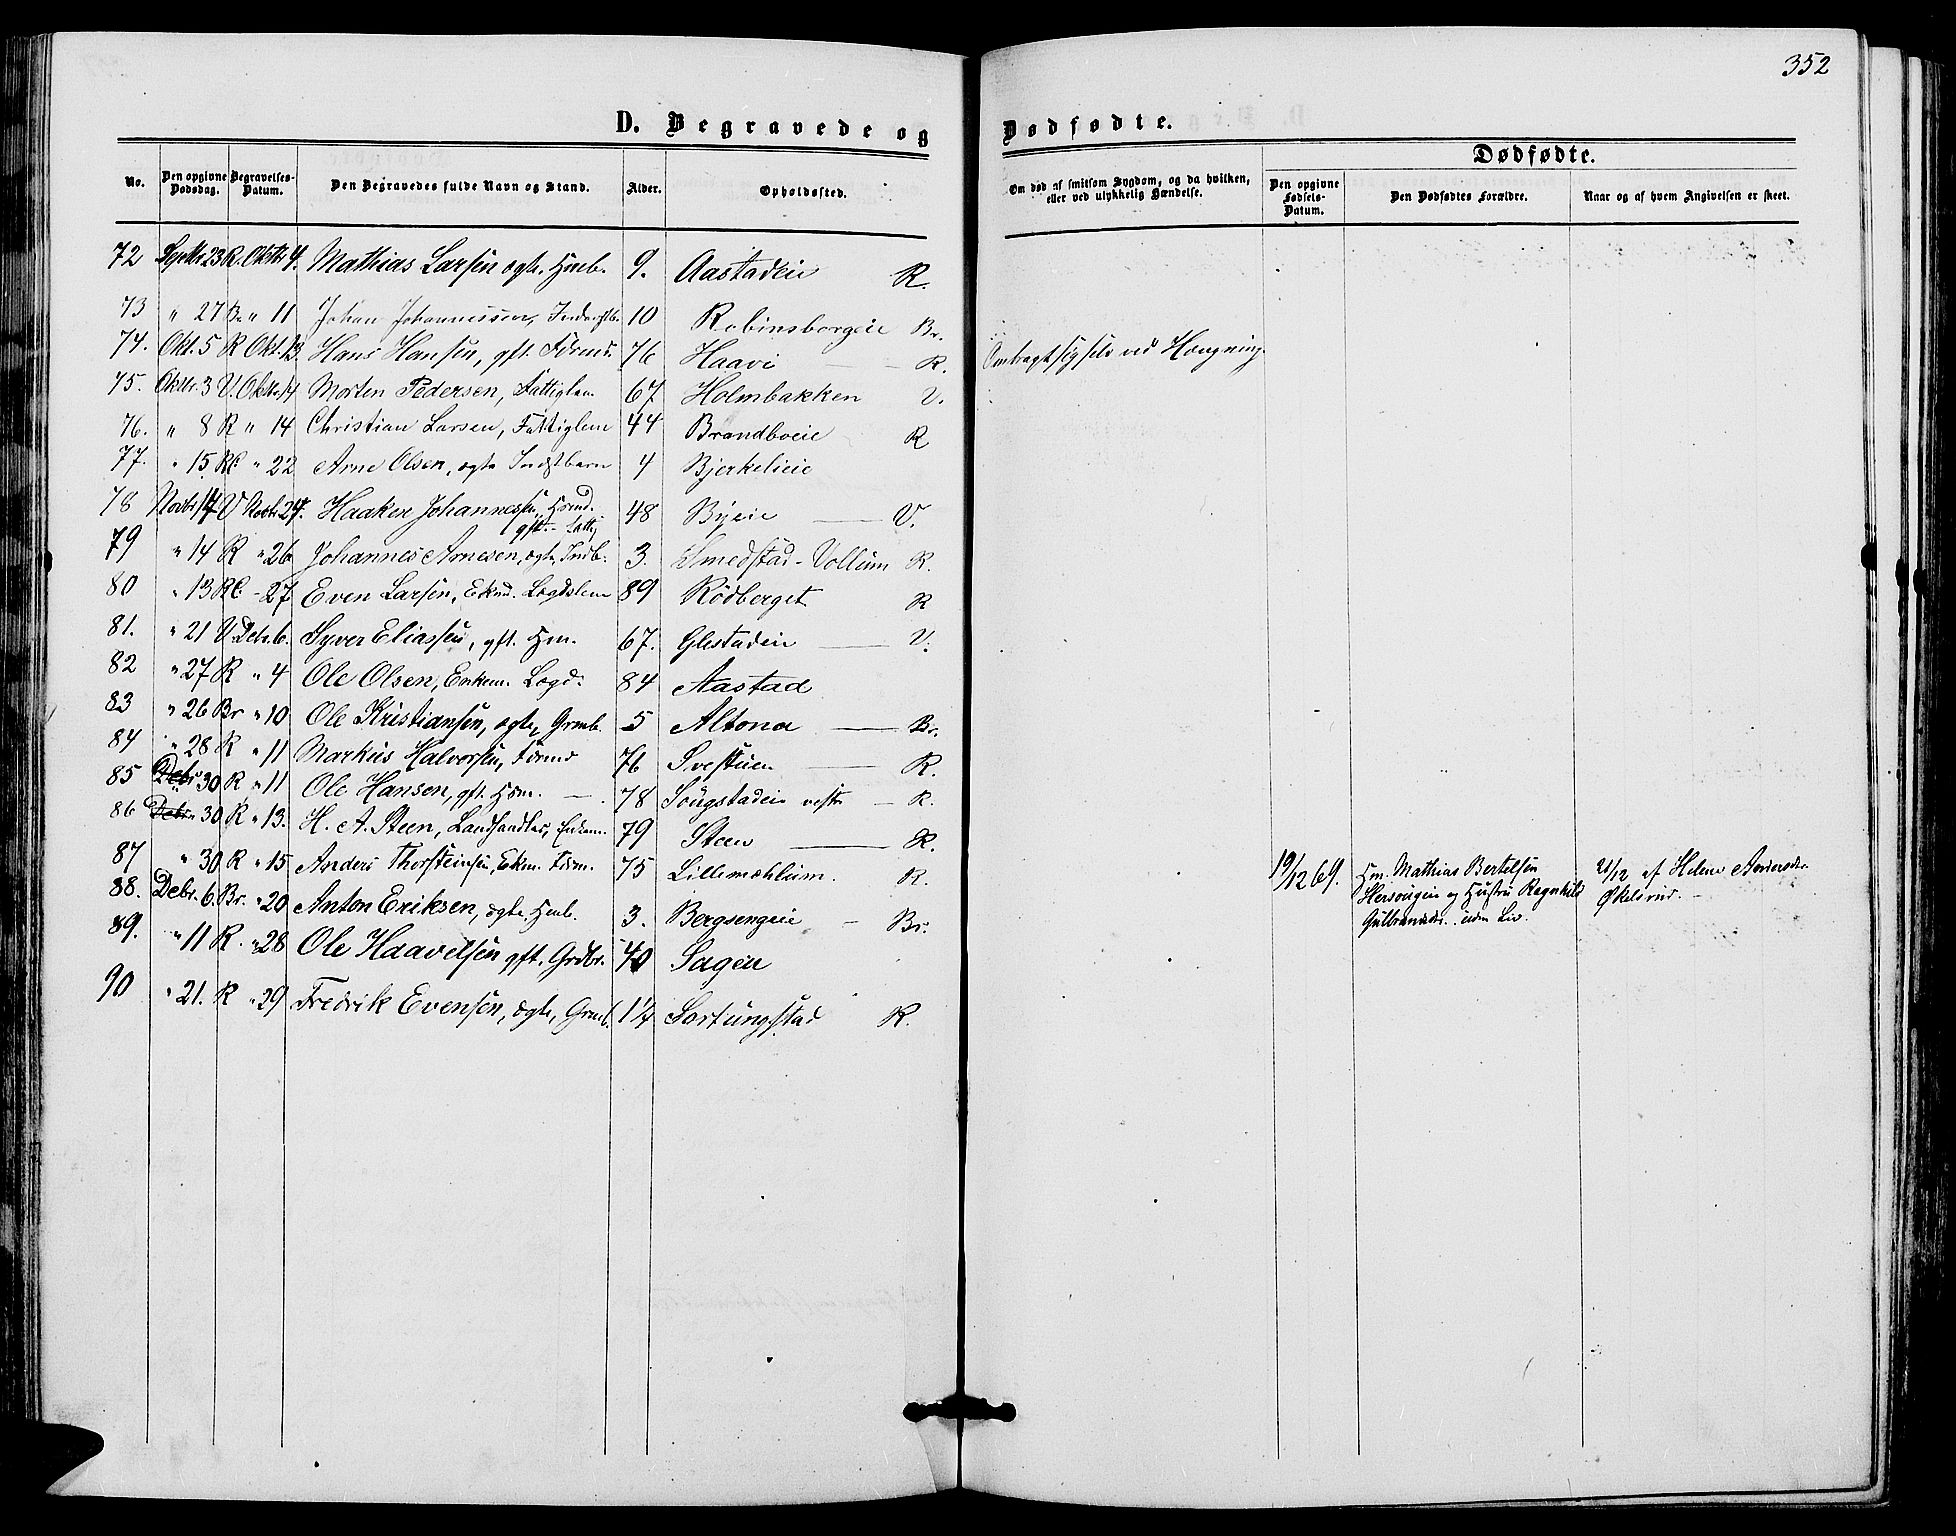 352
D. Begravede og Dødfødte.
No. Den opgivne Dødsdag. Begravelses-Datum. Den Begravedes fulde Navn og Stand. Alder. Opholdssted.
Om død af smitsom Sygdom, og da hvilken, eller ved ulykkelig Hændelse.
Dødfødte.
Den opgivne Fødsels-Datum. Den Dødfødtes Forældre. Naar og af hvem Angivelsen er skeet.
72 Septbr 23 R. Oktbr 4. Mathias Larsen ægte. Hmb. 9. Aastadeie R.
73 " 27 Br " 11 Johan Johannessen, Inderstb. 10 Robinsborgeie Br.
74. Okt. 5 R Okt. Hans Hansen, gft. Førmd. 76 Haavi — R. Ombragt sig selv ved Hængning.
75. Oktbr 3 V. Oktbr 14 Morten Pedersen, Fattiglem 67 Holmbakken V.
76. " 8 R " 14 Christian Larsen, Fattiglem 44 Brandboeie R
77. " 15 R " 22 Arne Olsen, ægte Indstbarn 4 Bjerkelieie
78 Novbr 17 V Novbr 24. Haaken Johannessen, Hsmd. gft. Fattig 48 Byeie — V.
79 " 14 R " 26 Johannes Arnesen, ægte, Indb. 3. Smedstad-Vollum R.
80 " 13 R - 27 Even Larsen, Lægdslem 89 Rödberget R
81. " 21 V. Debr. 6. Syver Eliassen, gft. Hm. 67. Glestadeie — V.
82 " 27 R " 4 Ole Olsen, Enkem. Lægd: 84 Aastad
83 " 26 Br " 10 Ole Kristiansen, ægte, Grmb. 5 Altona — Br.
84 " 28 R " 11 Markus Halvorsen, Førmd 76 Svestuen — R.
85 " 30 R " 11 Ole Hansen, gft. Hsm. — 78 Sougstadeie vestre — R.
86 " 30 R " 13. H. A. Steen, Landhandler, Enkem. 79 Steen — R.
87 " 30 R " 15 Anders Thorsteinsen, Ekm. Førm. 75 Lillemæhlum. R.
88. Debr. 6. Br. " 20 Anton Eriksen, ægte. Hmb. 3. Bergsengeie — Br.
89. " 11 R. " 28 Ole Haavelsen gft. Grdbr. 40 Sagen
90 " 21. R " 29 Fredrik Evensen, ægte, Grmb. 1¼ Sortungstad R.
19/12 69. Hm. Mathias Bertelsen
Hersougeie og Hustru Ragnhild
Gulbrandsdr. uden Liv.
21/12 af Helene Andersdr.
Økelsrud. —